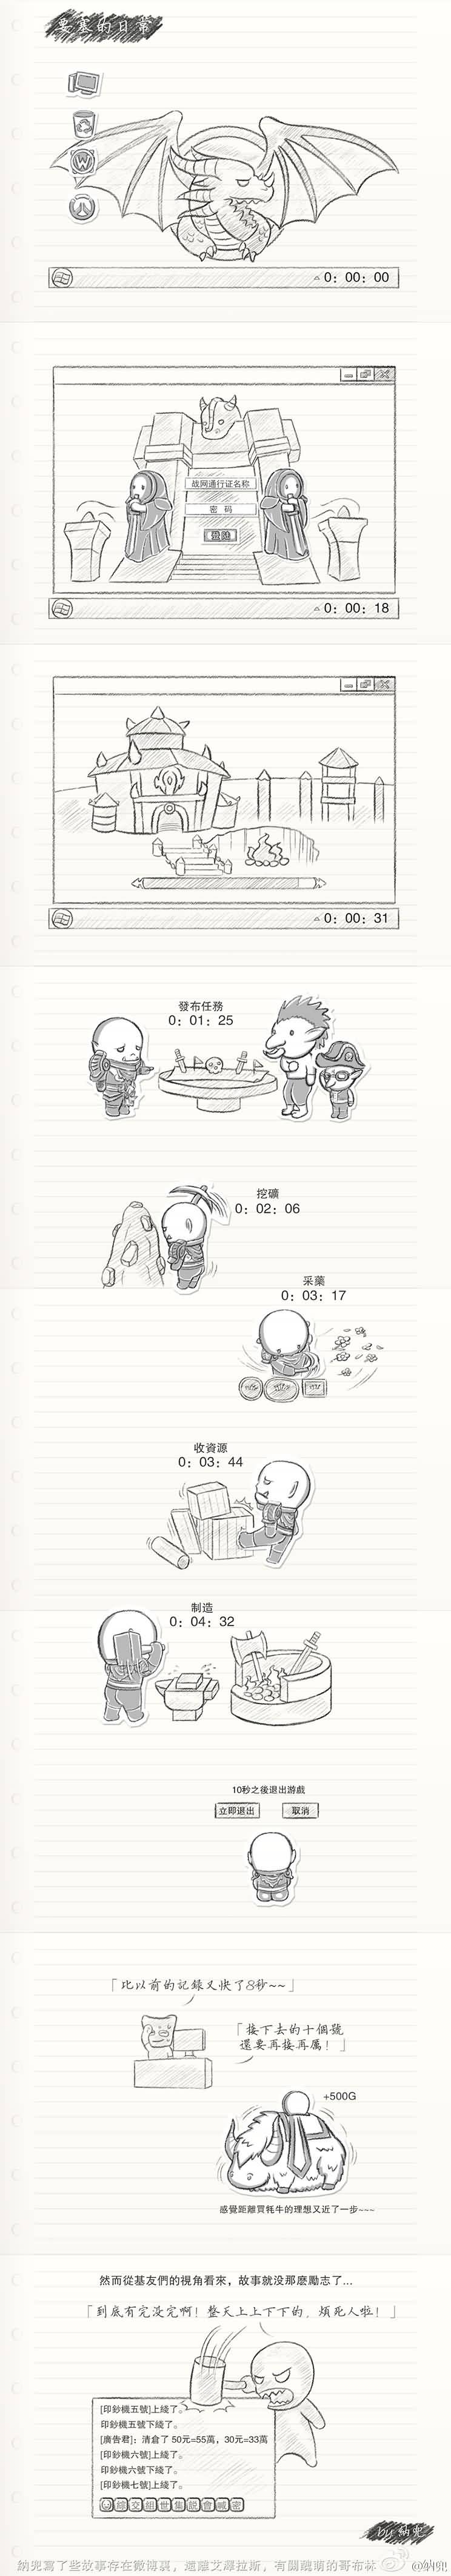 要塞的日常
W
0: 00: 00
战网通行证名称
密 码
登陸
0: 00: 18
0: 00: 31
發布任務
0: 01: 25
挖礦
0: 02: 06
采藥
0: 03: 17
收資源
0: 03: 44
制造
0: 04: 32
10秒之後退出游戲
立即退出
取消
「比以前的記錄又快了8秒~~」
「接下去的十個號
還要再接再厲！」
+500G
感覺距離買牦牛的理想又近了一步~~~
然而從基友們的視角看來，故事就没那麽勵志了...
「到底有完没完啊！整天上上下下的，煩死人啦！」
[印鈔機五號]上綫了。
印鈔機五號下綫了。
[廣告君]：清倉了 50元=55萬，30元=33萬
[印鈔機六號]上綫了。
印鈔機六號下綫了。
[印鈔機七號]上綫了。
綜 交 組 世 集 說 會 喊 密
by 納兜
納兜寫了些故事存在微博裏，遠離艾澤拉斯，有關醜萌的哥布林
@納兜